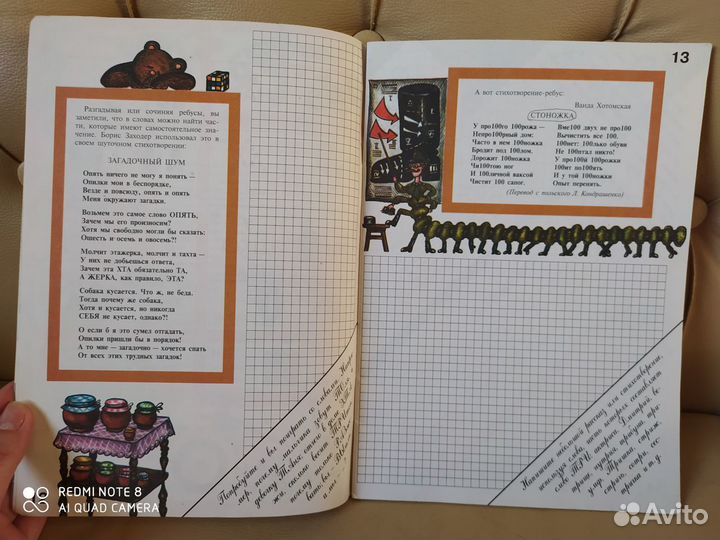 Разгадывая или сочиняя ребусы, вы
заметили, что в словах можно найти час-
ти, которые имеют самостоятельное зна-
чение. Борис Заходер использовал это в
своем шуточном стихотворении:
ЗАГАДОЧНЫЙ ШУМ
Опять ничего не могу я понять —
Опилки мои в беспорядке,
Везде и повсюду, опять и опять
Меня окружают загадки.
Возьмем это самое слово ОПЯТЬ,
Зачем мы его произносим?
Хотя мы свободно могли бы сказать:
Ошесть и осемь и овосемь?!
Молчит этажерка, молчит и тахта —
У них не добьешься ответа,
Зачем эта ХТА обязательно ТА,
А ЖЕРКА, как правило, ЭТА?
Собака кусается. Что ж, не беда.
Тогда почему же собака,
Хотя и кусается, но никогда
СЕБЯ не кусает, однако?!
О если б я это сумел отгадать,
Опилки пришли бы в порядок!
А то мне — загадочно — хочется спать
От всех этих трудных загадок!
Попробуйте и вы поиграть со словами. Напри-
мер, почему мальчика зовут
13
А вот стихотворение-ребус:
Ванда Хотомская
СТОНОЖКА
У про100го 100рожа —
Непро100рный дом:
Часто в нем 100ножка
Бродит под 100лом.
Дорожит 100ножка
Чи100тою ног
И 100личной ваксой
Чистит 100 сапог.
Вме100 двух не про100
Вычистить все 100.
100нет: 100лько обуви
Не 100птал никто!
У про100й 100рожки
100ит по100ять
И у той 100ножки
Опыт перенять.
(Перевод с польского Л. Кондрашенко)
Напишите небольшой рассказ или стихотворение,
используя слова, часть которых составляет
слово ТРИ:
REDMI NOTE 8
AI QUAD CAMERA
Avito